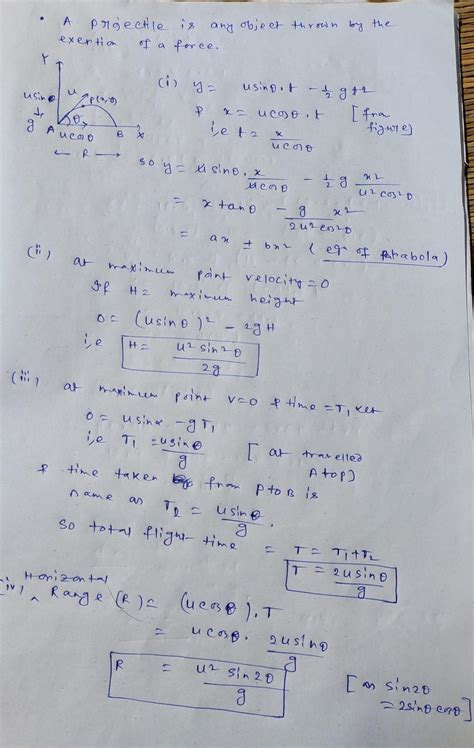 • A projectile is any object thrown by the
exertion of a force.
Y
usinθ u P(x,y)
g θ
A ucosθ B X
← R →
(i) y = usinθ.t - 1/2 gt²
& x = ucosθ.t [from
figure]
i,e t = x/ucosθ
so y = usinθ. x/ucosθ - 1/2 g x²/u²cos²θ
= x tanθ - g/2u²cos²θ x²
= ax ± bx² (eqn of parabola)
(ii) at maximum point velocity = 0
If H = maximum height
0 = (usinθ)² - 2gH
i,e H = u²sin²θ/2g
(iii) at maximum point v=0 & time = T₁
0 = usinα - gT₁
i,e T₁ = usinθ/g [at travelled
A top]
& time taken from P to B is
name as T₂ = usinθ/g.
so total flight time = T = T₁+T₂
T = 2usinθ/g
(iv) Horizontal
Range (R) = (ucosθ).T
= ucosθ. 2usinθ/g
R = u² sin2θ/g [as sin2θ
= 2sinθcosθ]